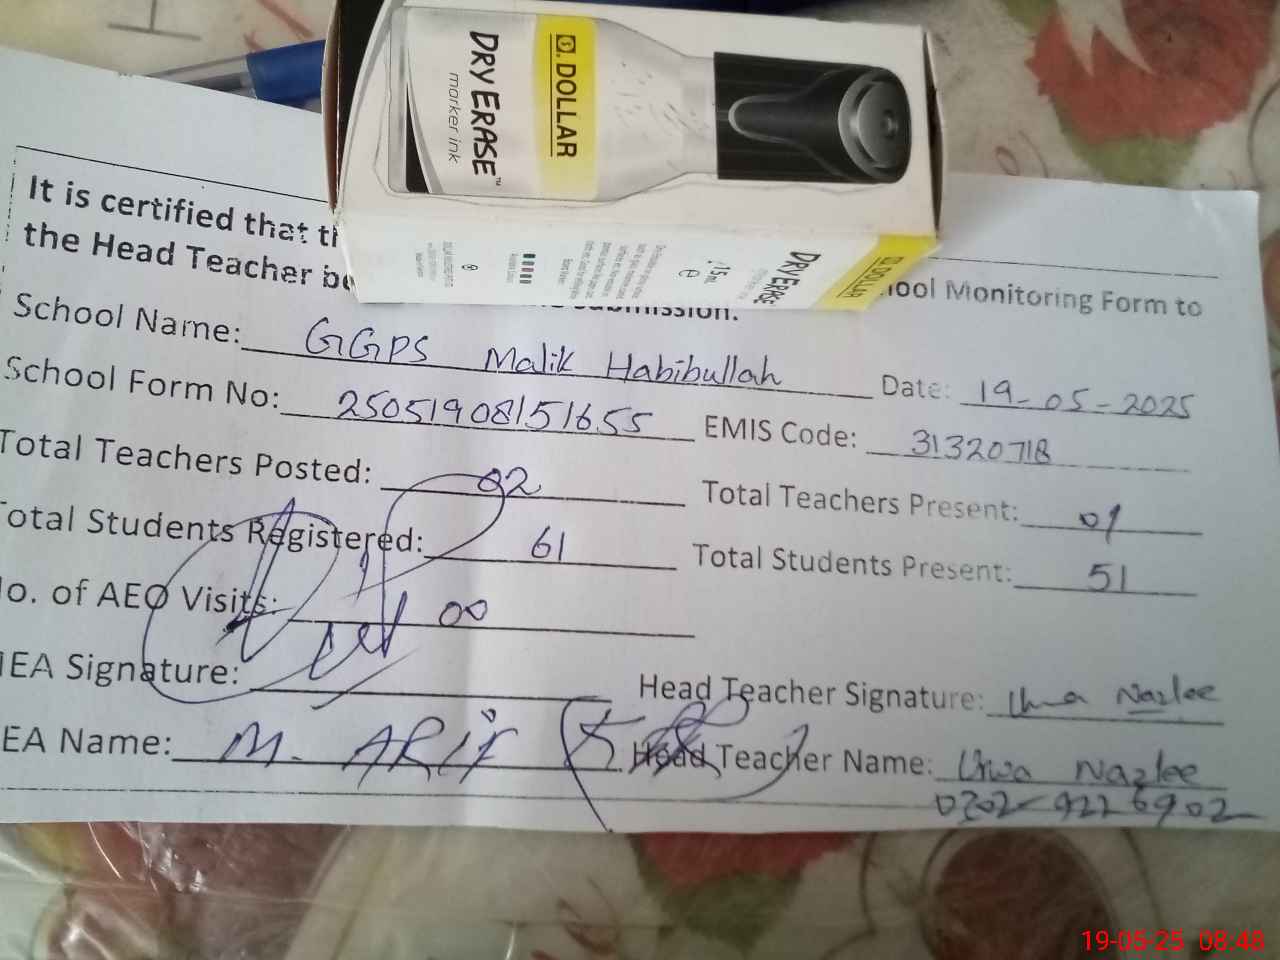 DOLLAR
DRY ERASE™
marker ink
DOLLAR
DRY ERASE
15ml
It is certified that
the Head Teacher
School Monitoring Form to
submission.
School Name: GGPS Malik Habibullah Date: 19-05-2025
School Form No: 25051908151655 EMIS Code: 31320718
Total Teachers Posted: 02 Total Teachers Present: 01
Total Students Registered: 61 Total Students Present: 51
No. of AEO Visits: 00
MEA Signature: Head Teacher Signature: Urwa Nazlee
MEA Name: M. ARIF Head Teacher Name: Urwa Nazlee
0302-9226902
19-05-25 08:48